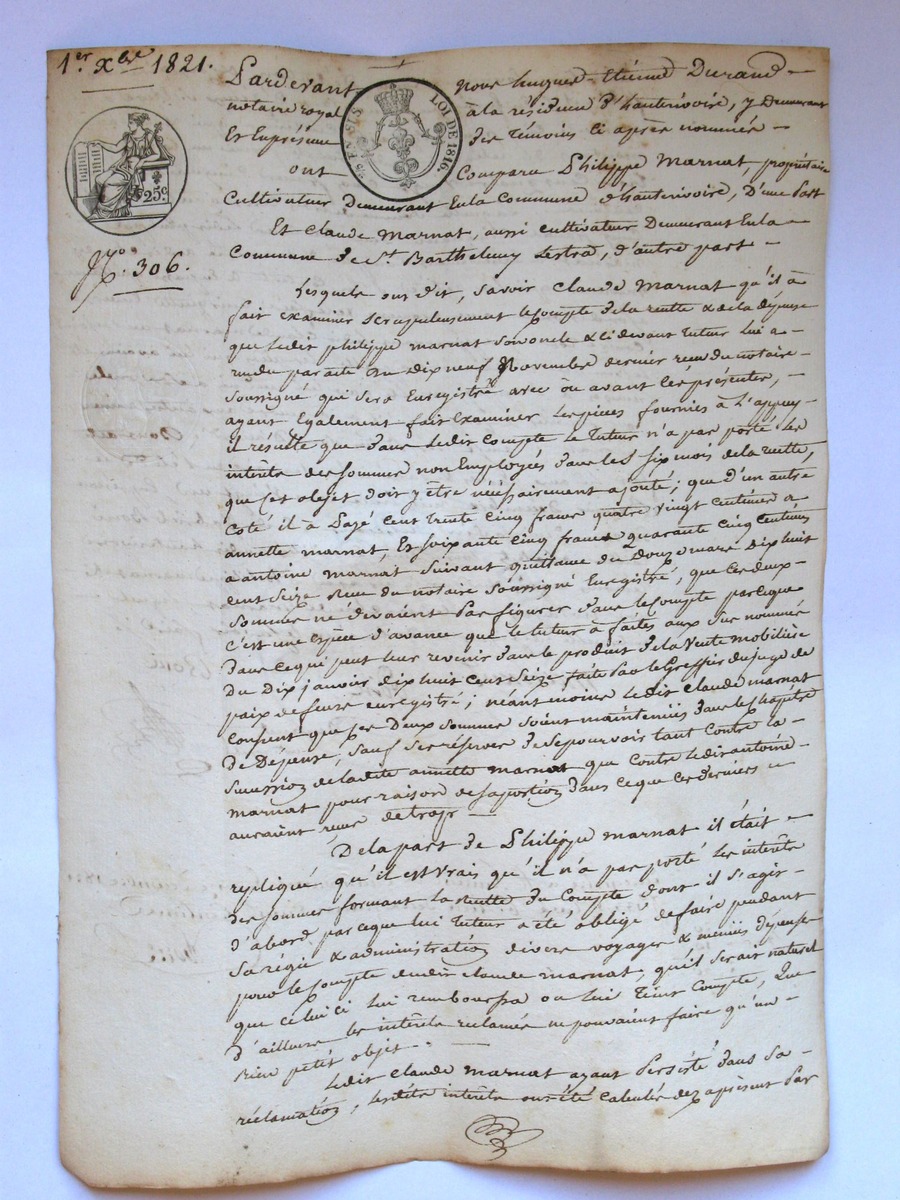 1.er Xbre 1821.
Pardevant nous hugues Etienne Durand
notaire royal à la résidence d'hauterivoire, y Demeurant
Et En présence des Témoins ci après nommés
ont Comparu Philippe Marnat, propriétaire
Cultivateur Demeurant En la Commune d'hauterivoire, D'une Part
Et Claude Marnat, aussi cultivateur Demeurant En la
Commune de St. Barthelemy Lestra, d'autre part
25 EN SUS
LOI DE 1816.
25c.
No. 306.
Lesquels ont dit, savoir Claude Marnat qu'il à
fait examiner scrupuleusement le compte de la recette & de la dépense
que ledit philippe marnat son oncle & ci devant tuteur lui a
rendu par acte du dix neuf Novembre dernier reçu du notaire
soussigné qui sera Enregistré avec ou avant ces présentes,
ayant Egalement fait Examiner les pièces fournies à L'appuy
Il résulte que dans ledit Compte le tuteur n'a pas porté les
intérêts des sommes non Employées dans les six mois de la recette,
que cet objet doit y être nécéssairement ajouté; que d'un autre
coté il à Payé Cent trente Cinq francs quatre vingt Centimes a
annette marnat, Et soixante cinq francs quarante cinq Centimes
a antoine Marnat suivant quittance du Douze mars dix huit
cent seize reçue du notaire soussigné Enregistré, que ces deux
sommes ne devaient Pas figurer dans le Compte parceque
c'est une Espèce d'avance que le tuteur à faites aux sus nommés
Dans ce qui peut leur revenir dans le produit de la vente mobilière
Du Dix janvier dix huit cent seize faite Par le Greffier du juge de
paix de feurs enregistré; néant moins ledit claude marnat
Consent que ces Deux sommes soient maintenues dans le chapitre
de Dépense, sauf se réserver de se pourvoir tant contre la
succession de ladite annette marnat que contre ledit antoine
marnat pour raison de sa portion dans ce que ces derniers
auraient reçus de trop
De la part de Philippe marnat il était
repliqué qu'il est vrais qu'il n'a pas porté les intérêts
des sommes formant la recette du Compte dont il s'agit
D'abord parceque lui tuteur a été obligé de faire pendant
sa régie & administration divers voyages & menues dépenses
pour le Compte dudit claude marnat, qu'il serait naturel
que celui ci lui remboursa ou lui Teint Compte, Que
d'ailleurs les intérêts réclamés ne pouvaient faire qu'un
bien petit objet
Ledit Claude marnat ayant Persisté dans sa
réclamation, lesdits intérêts ont été calculés dez aprèsent Par